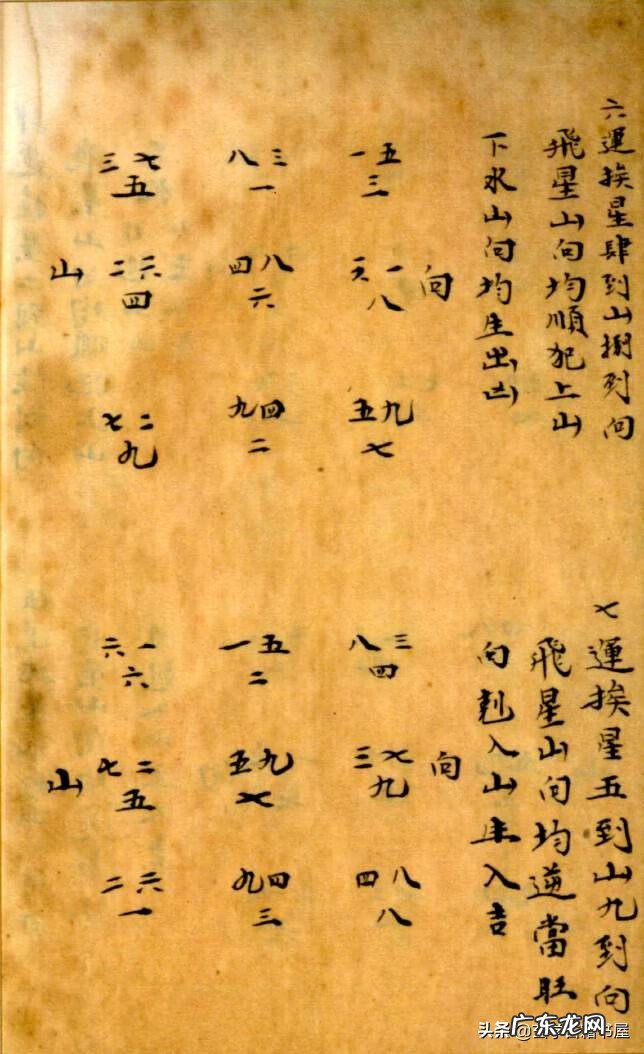 六運挨星肆到山捌到向
飛星山向均順犯上山
下水山向均生出凶
三七 八三 一五
五 一 三
山 二六 四八 六一 向
四 六 八
七二 九四 五九
九 二 七
七運挨星五到山九到向
飛星山向均逆當旺
向剋入山生入吉
六一 一五 八三
六 二 四
山 七二 五九 三七 向
五 七 九
二六 九四 四八
一 三 八
头条 书屋
广东龙网